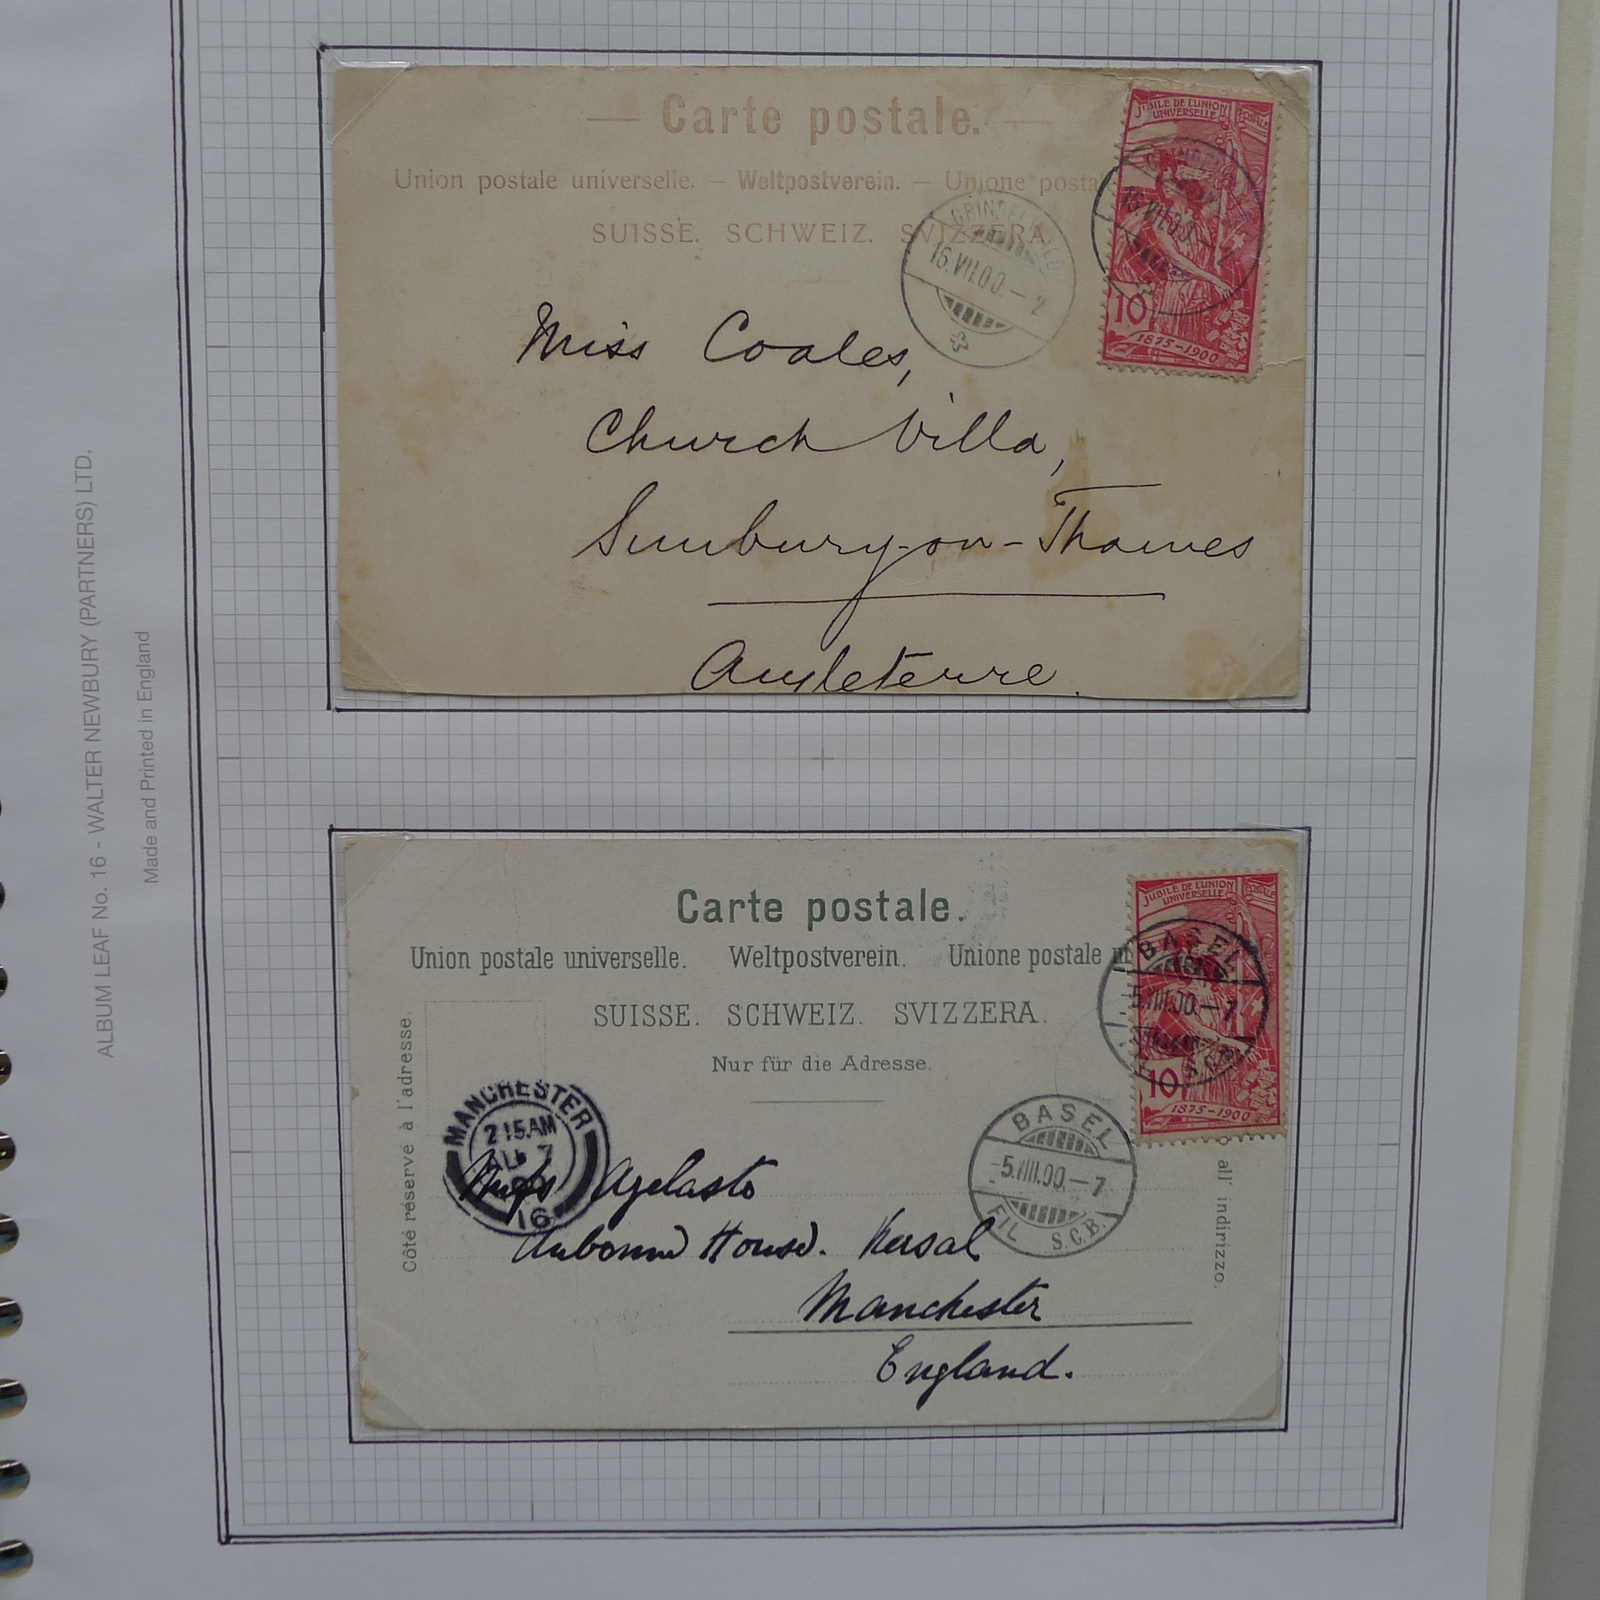 Carte postale.
Union postale universelle. — Weltpostverein. — Unione posta
SUISSE. SCHWEIZ. SVIZZERA.
JUBILÉ DE L'UNION
UNIVERSELLE POSTALE
10
1875-1900
GRINDELWALD
16.VII.00.-2
16.VII.00.-2
Miss Coales,
Church Villa,
Sunbury-on-Thames
Angleterre.
ALBUM LEAF No. 16 - WALTER NEWBURY (PARTNERS) LTD.
Made and Printed in England
Carte postale.
Union postale universelle. Weltpostverein. Unione postale
SUISSE. SCHWEIZ. SVIZZERA.
Nur für die Adresse.
JUBILÉ DE L'UNION
UNIVERSELLE POSTALE
BASEL
5.VIII.00.-7
10
1875-1900
Côté réservé à l'adresse.
all' indirizzo.
MANCHESTER
2 15 AM
AU 7
00
16
BASEL
-5.VIII.00.-7
FIL. S.C.B.
Miss Agelasto
House. Kersal
Manchester
England.